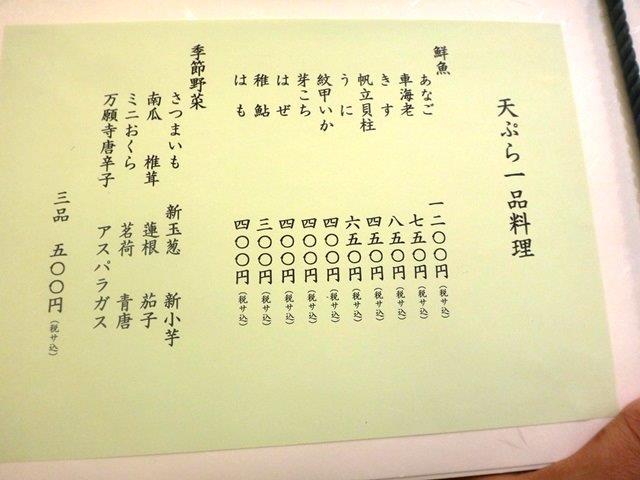 天ぷら一品料理
鮮魚
あなご 一二〇〇円（税サ込）
車海老 七五〇円（税サ込）
きす 八五〇円（税サ込）
帆立貝柱 四五〇円（税サ込）
うに 六五〇円（税サ込）
紋甲いか 四〇〇円（税サ込）
芽こち 四〇〇円（税サ込）
はぜ 四〇〇円（税サ込）
稚鮎 三〇〇円（税サ込）
はも 四〇〇円（税サ込）
季節野菜
さつまいも 新玉葱 新小芋
南瓜 椎茸 蓮根 茄子
ミニおくら 茗荷 青唐
万願寺唐辛子 アスパラガス
三品 五〇〇円（税サ込）